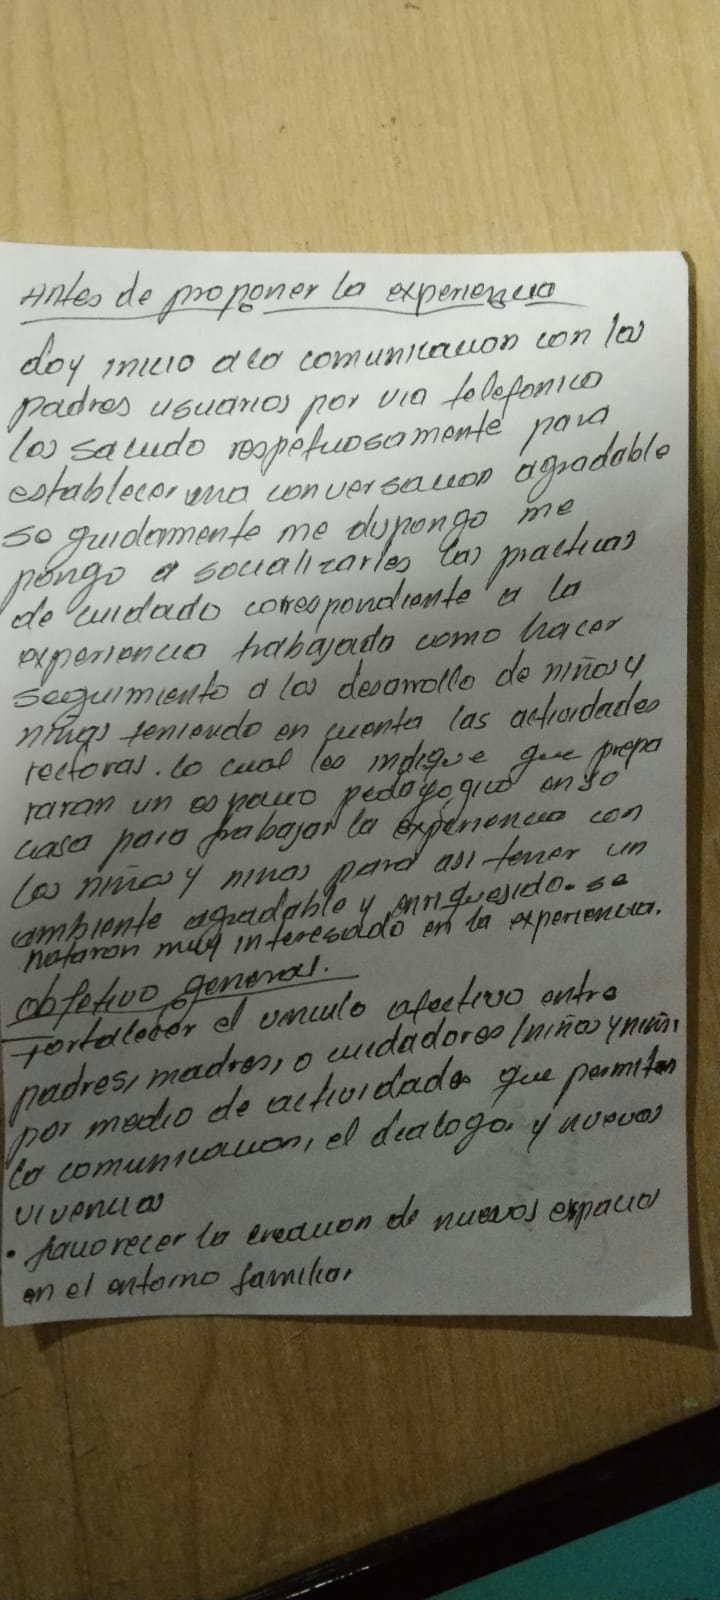 Antes de proponer la experiencia
doy inicio a la comunicacion con los
padres usuarios por via telefonico
los saludo respetuosamente para
establecer una conversacion agradable
seguidamente me dispongo me
pongo a socializarles las practicas
de cuidado correspondiente a la
experiencia trabajada como hacer
seguimiento a los desarrollo de niños y
niñas teniendo en cuenta las actividades
rectoras. lo cual les indique que prepa
raran un espacio pedagogico en su
casa para trabajar la experiencia con
los niños y ninas para asi tener un
ambiente agradable y enriquesido. se
notaron muy interesado en la experiencia.
objetivo general.
Fortalecer el vinculo afectivo entre
padres, madres, o cuidadores / niños y niñas
por medio de actividades que permitan
la comunicacion, el dialogo, y nuevas
vivencias
• favorecer la creacion de nuevos espacios
en el entorno familiar